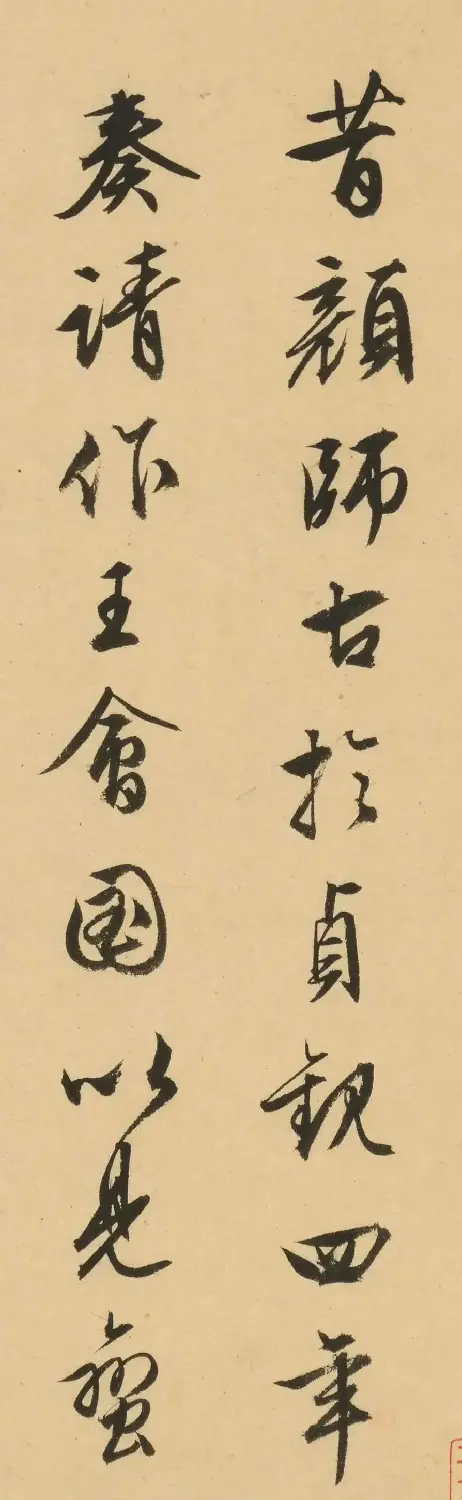 昔顏師古於貞觀四年
奏請作王會圖以見蠻